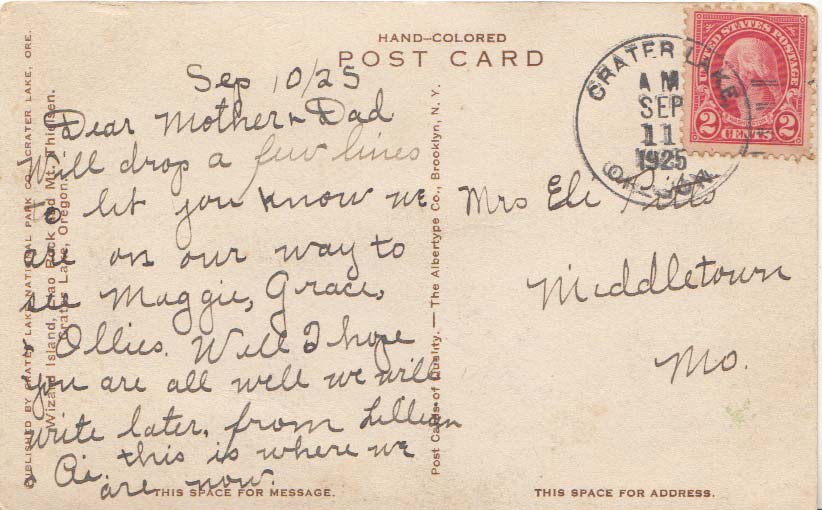 HAND-COLORED
POST CARD
Sep 10/25
Dear Mother & Dad
Will drop a few lines
To let you know we
are on our way to
see Maggie, Grace,
& Ollies. Well I hope
you are all well we will
write later, from Lillian
& Ai, this is where we
are now.
THIS SPACE FOR MESSAGE.
PUBLISHED BY CRATER LAKE NATIONAL PARK CO., CRATER LAKE, ORE.
Wizard Island, Llao Rock and Mt. Thielsen.
Crater Lake, Oregon.
Post Cards of Quality. — The Albertype Co., Brooklyn, N. Y.
CRATER LAKE
AM
SEP
11
1925
OREGON
UNITED STATES POSTAGE
2 CENTS 2
Mrs Eli
Middletown
Mo.
THIS SPACE FOR ADDRESS.